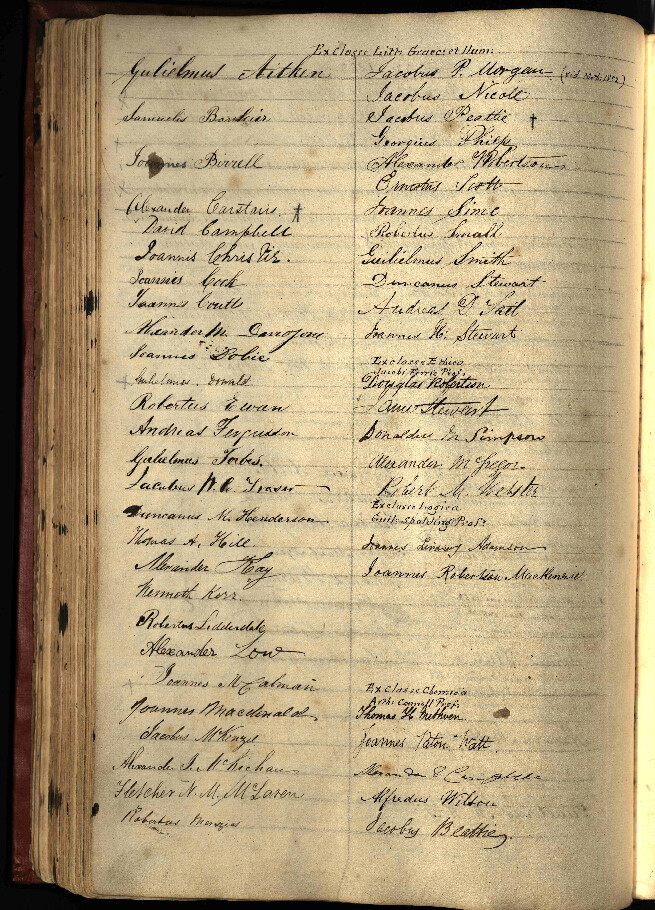 Ex Classe Litt. Graec: et Hum:
Gulielmus Aitken
Samuelis
Joannes Birrell
Alexander Carstairs. †
David Campbell
Joannis Christie.
Joannes Cook
Joannes Coutts
Alexander M.
Joannes Dobie
Gulielmus Donald
Robertus Ewan
Andreas Fergusson
Gulielmus Forbes.
Jacobus Fraser
Duncanus M. Henderson
Thomas A. Hill
Alexander Kay
Kenneth Kerr.
Robertus Lidderdale
Alexander Low
Joannes McCalman
Joannes Macdonald
Jacobus McKenzie
Alexander J. McKichan
Fletcher N. M. McLaren
Robertus Menzies
Jacobus P. Morgan
Jacobus Nicoll
Jacobus Beattie †
Georgius Philp
Alexander Robertson
Ernestus Scott
Joannes Sime
Robertus Small
Gulielmus Smith
Duncanus Stewart
Andreas D. Tait
Joannes H. Stewart
Ex Classe Ethica
Jacobi Ferrie Prof:
Douglas Robertson
Stewart
Donaldus M Simpson
Alexander McGregor
Robert M. Webster
Ex Classe Logica
Guil: Spalding Prof:
Joannes Lindsay Adamson
Joannes Robertson MacKenzie
Ex Classe Chemica
Arth: Connell Prof:
Thomas H. Methven
Joannes Paton Watt
Alexander Campbell
Alfredus Wilson
Jacobus Beattie